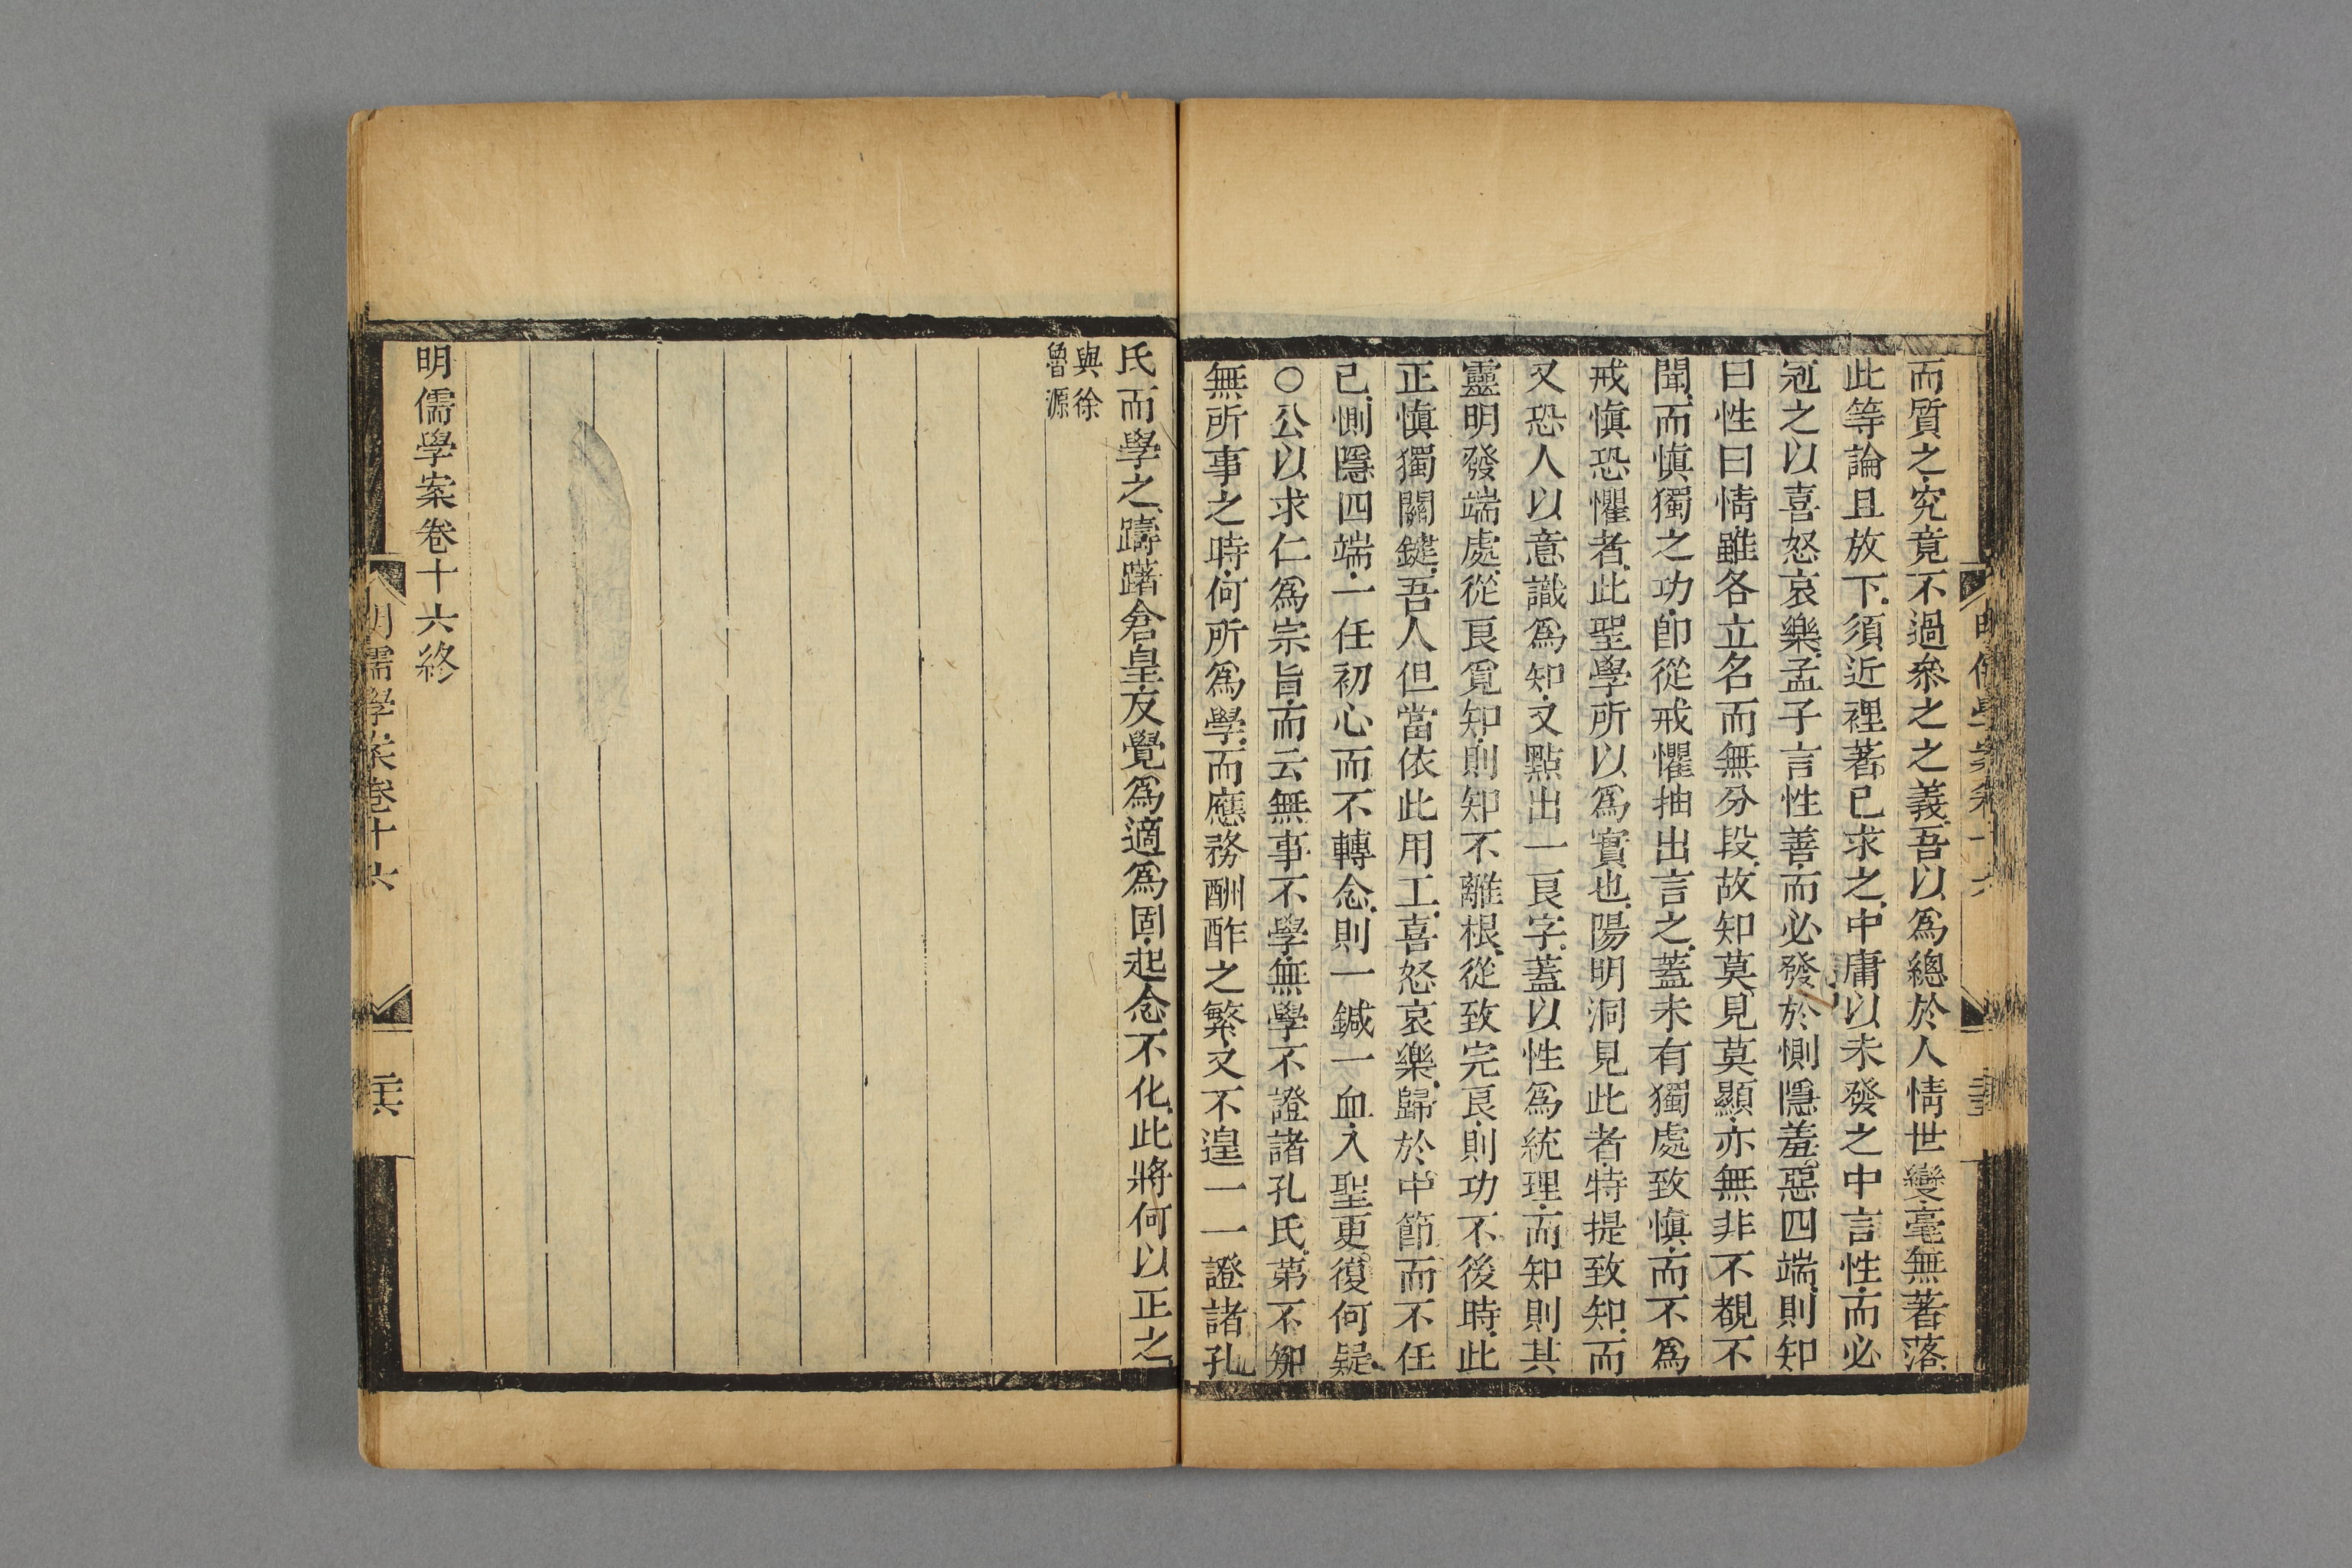 而質之究竟不過參之之義吾以爲總於人情世變毫無著落
此等論且放下須近裡著己求之中庸以未發之中言性而必
冠之以喜怒哀樂孟子言性善而必發於惻隱羞惡四端則知
曰性曰情雖各立名而無分段故知莫見莫顯亦無非不覩不
聞而愼獨之功卽從戒懼抽出言之蓋未有獨處致愼而不爲
戒愼恐懼者此聖學所以爲實也陽明洞見此者特提致知而
又恐人以意識爲知又點出一良字蓋以性爲統理而知則其
靈明發端處從良覓知則知不離根從致完良則功不後時此
正愼獨關鍵吾人但當依此用工喜怒哀樂歸於中節而不任
己惻隱四端一任初心而不轉念則一鍼一血入聖更復何疑
○公以求仁爲宗旨而云無事不學無學不證諸孔氏第不知
無所事之時何所爲學而應務酬酢之繁又不遑一一證諸孔
氏而學之躊躇倉皇反覺爲適爲固起念不化此將何以正之
與徐
魯源
明儒學案卷十六終
明儒學案卷十六